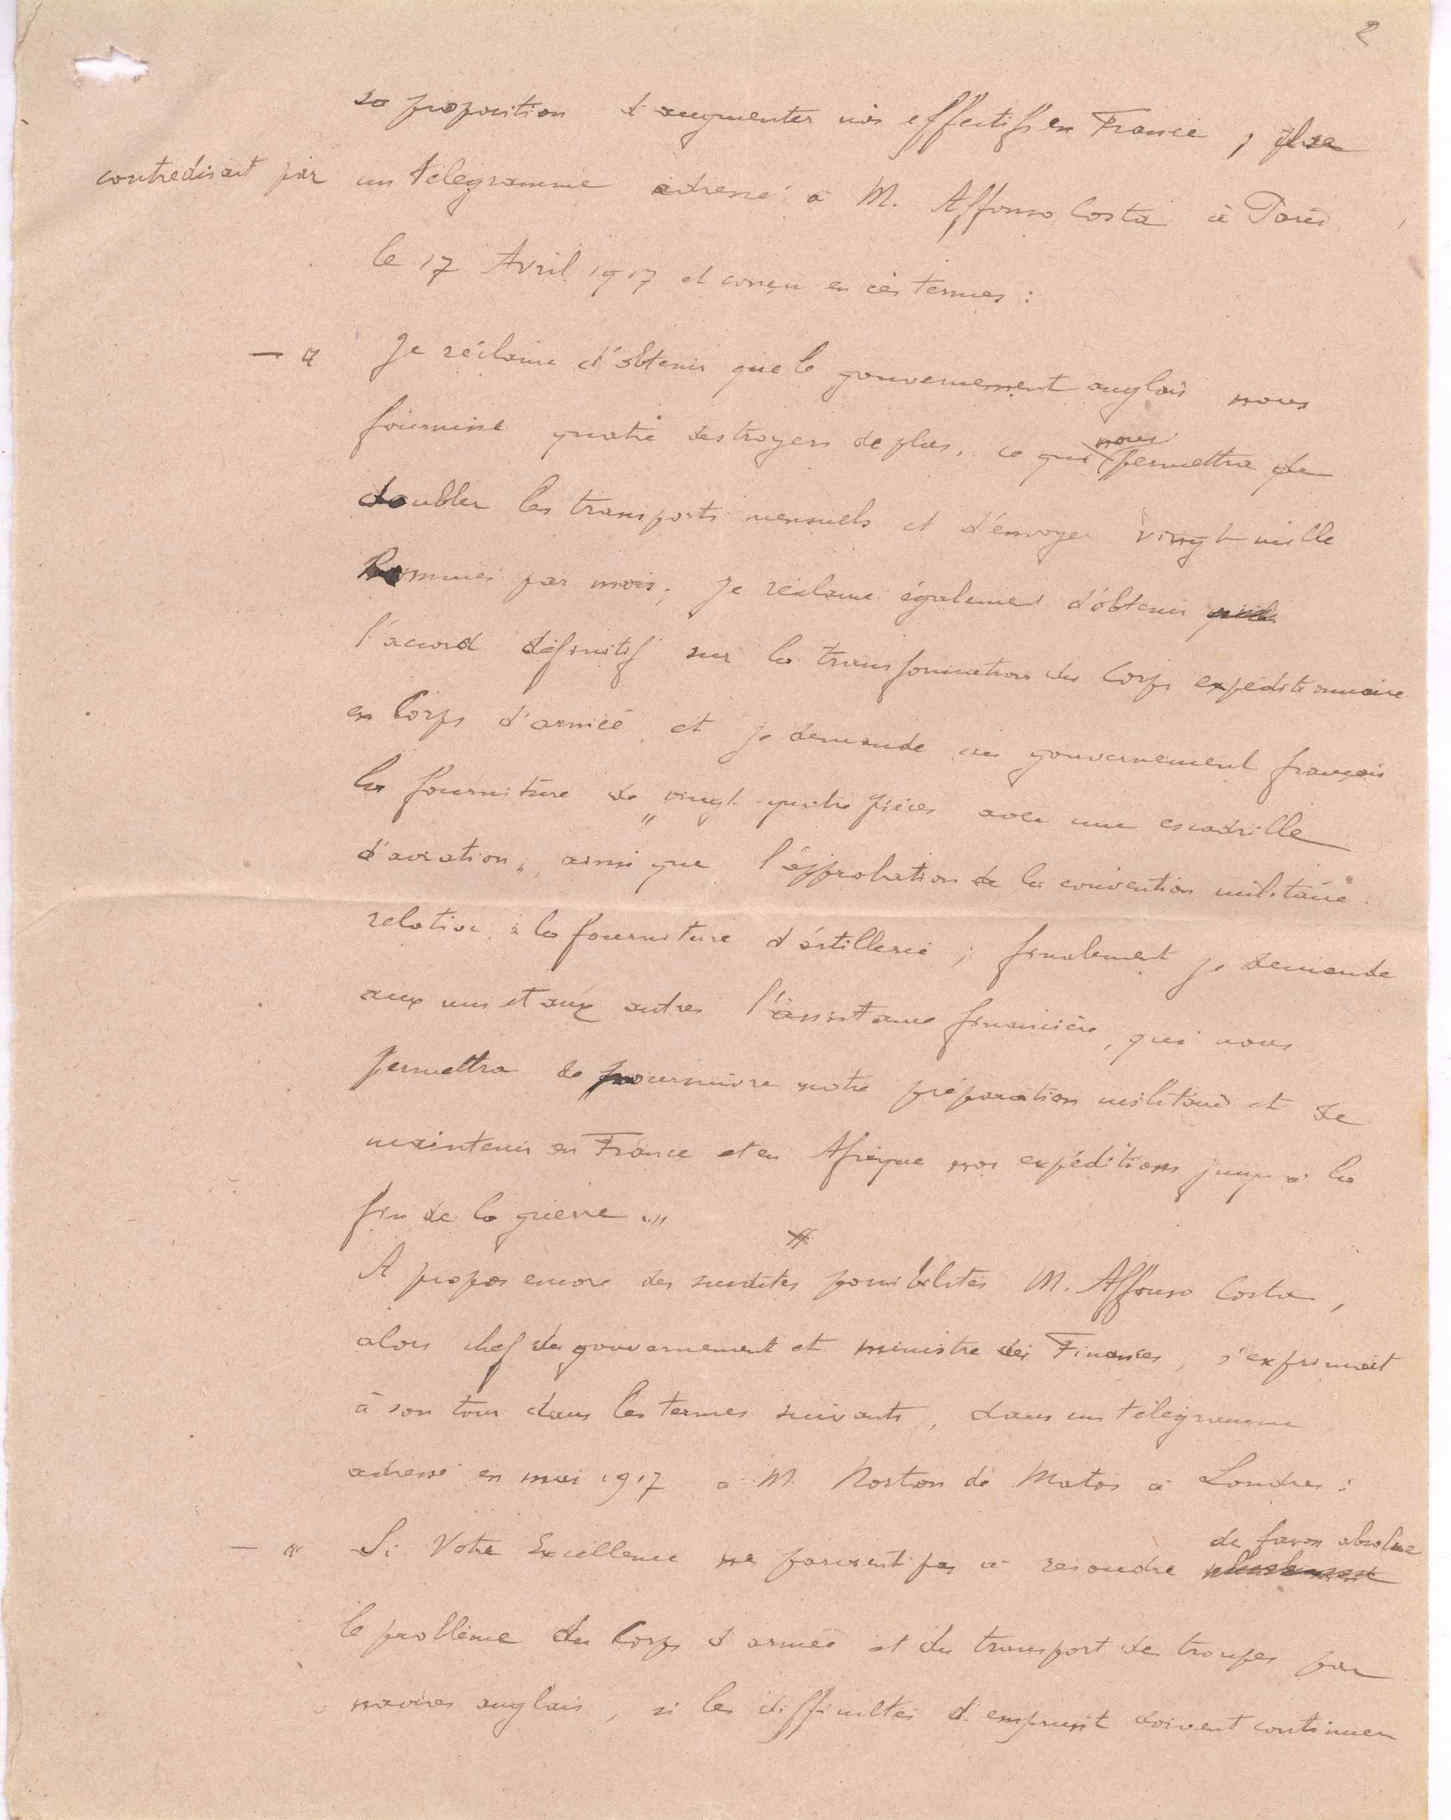 2
sa proposition d'augmenter nos effectifs en France, par
contredisait par un télégramme adressé à M. Affonso Costa à Paris
le 17 Avril 1917 et conçu en ces termes :
— « Je réclame d'obtenir que le gouvernement anglais nous
fournisse quatre destroyers de plus, ce qui nous permettra de
doubler les transports mensuels et d'envoyer vingt mille
hommes par mois; je réclame également d'obtenir
l'accord définitif sur la transformation du Corps expéditionnaire
en Corps d'armée et je demande au gouvernement français
la fourniture de „vingt-quatre pièces avec une escadrille
d'aviation„ ainsi que l'approbation de la convention militaire
relative à la fourniture d'artillerie ; finalement je demande
aux uns et aux autres l'assistance financière, qui nous
permettra de poursuivre notre préparation militaire et de
maintenir en France et en Afrique nos expéditions jusqu'à la
fin de la guerre „„
A propos encore des susdites possibilités M. Affonso Costa,
alors chef de gouvernement et ministre des Finances, s'exprimait
à son tour dans les termes suivants, dans un télégramme
adressé en mai 1917 à M. Norton de Matos à Londres :
— « Si Votre Excellence ne parvient pas à résoudre de façon absolue
le problème du Corps d'armée et du transport des troupes par
navires anglais, si les difficultés d'emprunt doivent continuer